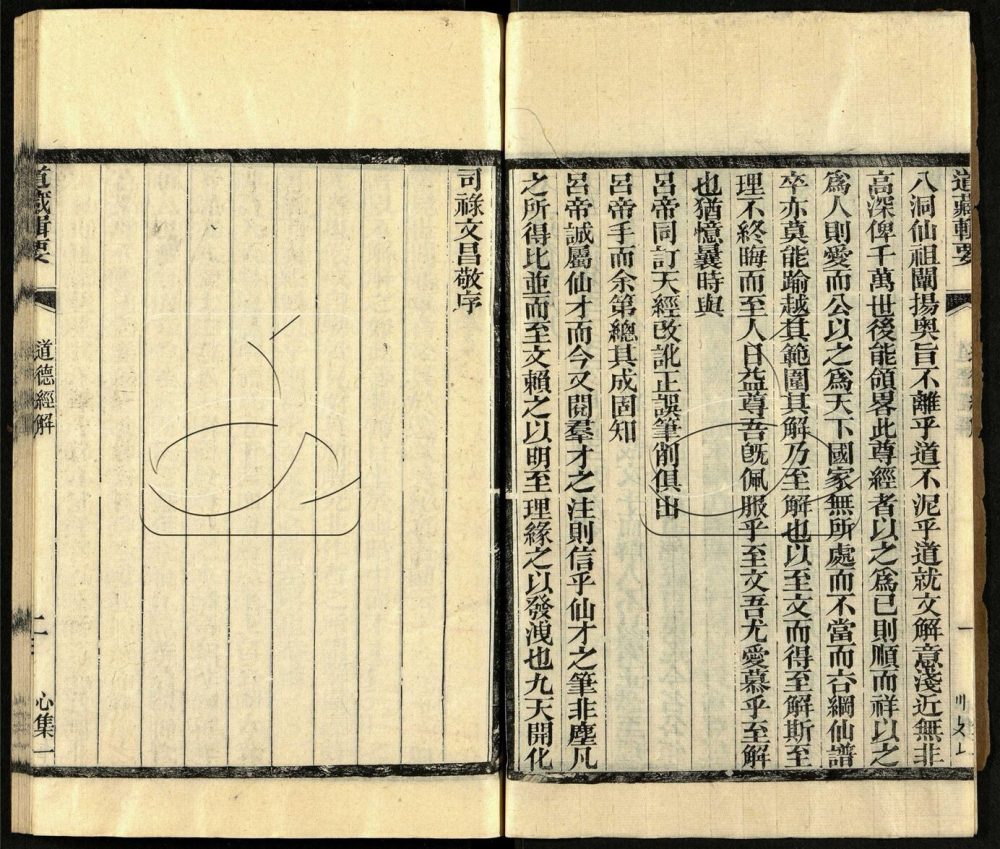 道藏輯要
八洞仙祖闡揚奧旨不離乎道不泥乎道就文解意淺近無非
高深俾千萬世後能領畧此尊經者以之為已則順而祥以之
為人則愛而公以之為天下國家無所處而不當而谷綱仙譜
卒亦莫能踰越其範圍其解乃至解也以至文而得至解斯至
理不終晦而至人日益尊吾旣佩服乎至文吾尤愛慕乎至解
也猶憶曩時與
呂帝同訂天經改訛正誤筆削俱出
呂帝手而余第總其成固知
呂帝誠屬仙才而今又閱羣才之注則信乎仙才之筆非塵凡
之所得比並而至文賴之以明至理緣之以發洩也九天開化
司祿文昌敬序
道藏輯要
道德經解
二
心集一